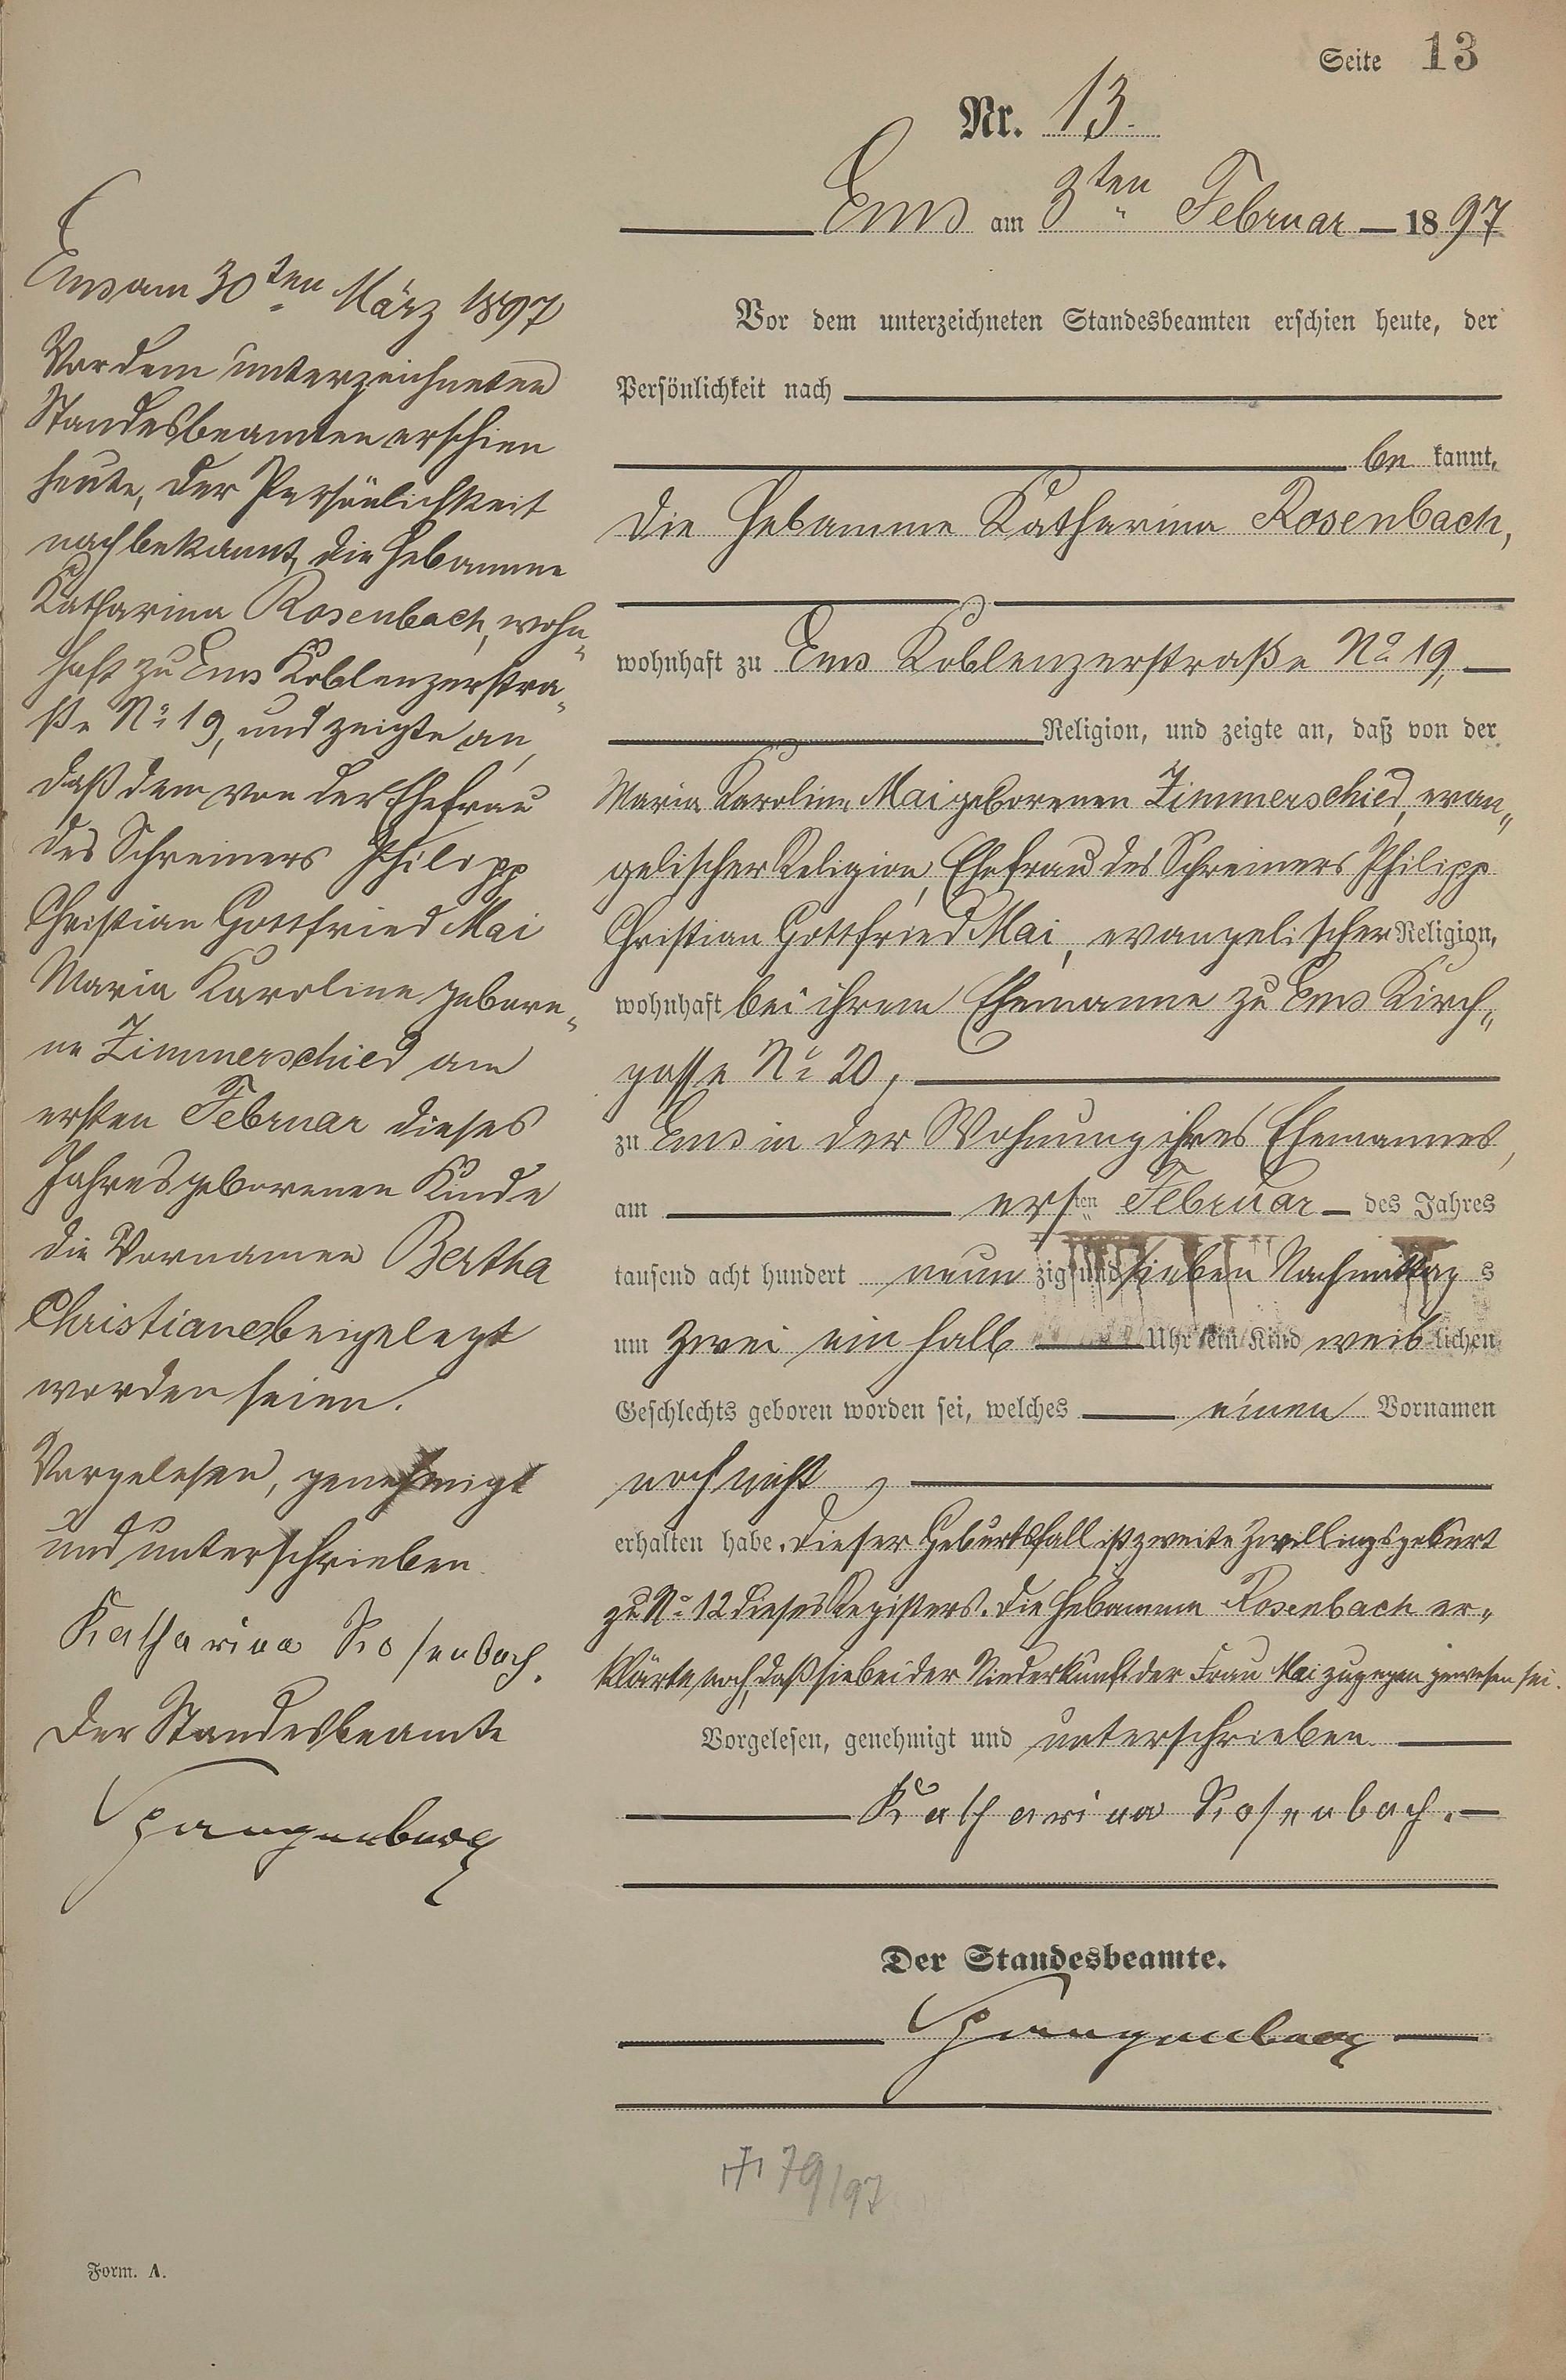 Seite 13
Nr. 13.
Ems am 3ten Februar 1897
Vor dem unterzeichneten Standesbeamten erschien heute, der
Persönlichkeit nach
be kannt,
die Hebamme Katharina Rosenbach,
wohnhaft zu Ems Koblenzerstraße No 19,
Religion, und zeigte an, daß von der
Maria Karoline Mai geborenen Zimmerschied, evan„
gelischer Religion, Ehefrau des Schreiners Philipp
Christian Gottfried Mai, evangelischer Religion,
wohnhaft bei ihrem Ehemanne zu Ems Kirch„
gasse No 20,
zu Ems in der Wohnung ihres Ehemannes,
am ersten Februar des Jahres
tausend acht hundert neunzig und sieben Nachmittags
um zwei ein halb Uhr ein Kind weiblichen
Geschlechts geboren worden sei, welches einen Vornamen
noch nicht
erhalten habe. Dieser Geburtsfall ist zweite Zwillingsgeburt
zu No 12 dieses Registers. Die Hebamme Rosenbach er„
klärte noch, daß sie bei der Niederkunft der Frau Mai zugegen gewesen sei.
Vorgelesen, genehmigt und unterschrieben.
Katharina Rosenbach.
Der Standesbeamte.
Spangenberg
+ 79/97
Ems am 30ten März 1897
Vor dem unterzeichneten
Standesbeamten erschien
heute, der Persönlichkeit
nach bekannt, die Hebamme
Katharina Rosenbach, wohn„
haft zu Ems Koblenzerstra„
ße No 19, und zeigte an,
daß dem von der Ehefrau
des Schreiners Philipp
Christian Gottfried Mai
Maria Karoline gebore„
ne Zimmerschied am
ersten Februar dieses
Jahres geborenen Kinde
die Vornamen Bertha
Christiane beigelegt
worden seien.
Vorgelesen, genehmigt
und unterschrieben.
Katharina Rosenbach.
Der Standesbeamte
Spangenberg
Form. A.